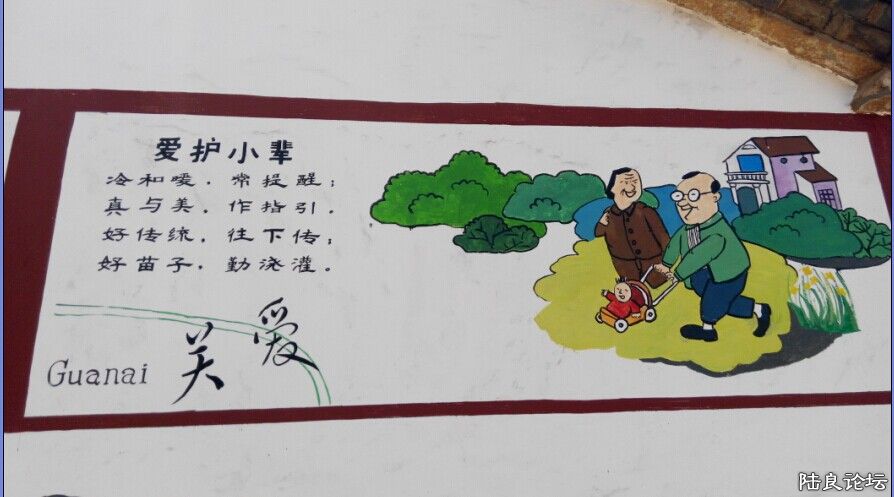 爱护小辈
冷和暖，常提醒；
真与美，作指引。
好传统，往下传；
好苗子，勤浇灌。
Guanai 关爱
陆良论坛